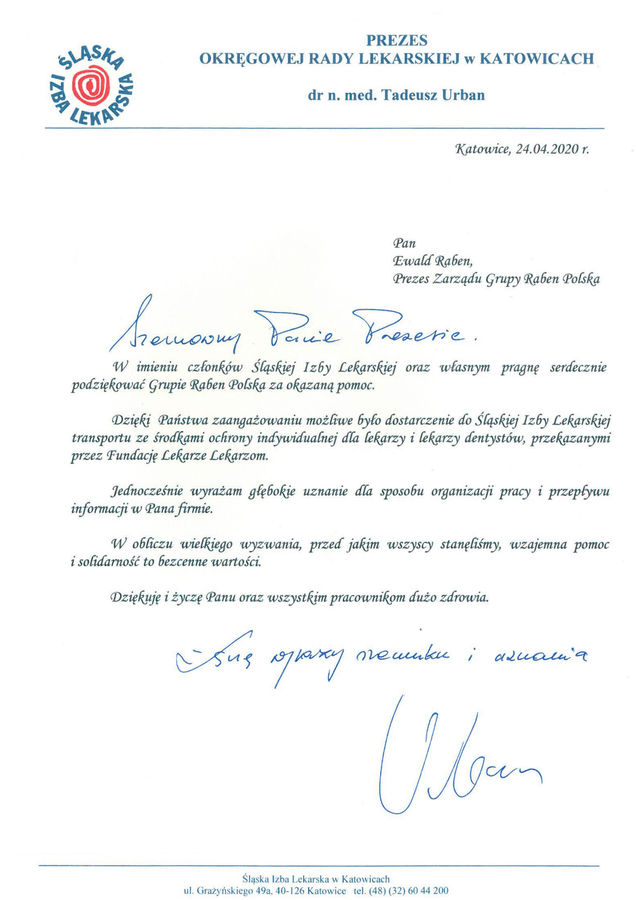 ŚLĄSKA
IZBA LEKARSKA
PREZES
OKRĘGOWEJ RADY LEKARSKIEJ w KATOWICACH
dr n. med. Tadeusz Urban
Katowice, 24.04.2020 r.
Pan
Ewald Raben,
Prezes Zarządu Grupy Raben Polska
Szanowny Panie Prezesie.
W imieniu członków Śląskiej Izby Lekarskiej oraz własnym pragnę serdecznie
podziękować Grupie Raben Polska za okazaną pomoc.
Dzięki Państwa zaangażowaniu możliwe było dostarczenie do Śląskiej Izby Lekarskiej
transportu ze środkami ochrony indywidualnej dla lekarzy i lekarzy dentystów, przekazanymi
przez Fundację Lekarze Lekarzom.
Jednocześnie wyrażam głębokie uznanie dla sposobu organizacji pracy i przepływu
informacji w Pana firmie.
W obliczu wielkiego wyzwania, przed jakim wszyscy stanęliśmy, wzajemna pomoc
i solidarność to bezcenne wartości.
Dziękuję i życzę Panu oraz wszystkim pracownikom dużo zdrowia.
Łączę wyrazy szacunku i uznania
Urban
Śląska Izba Lekarska w Katowicach
ul. Grażyńskiego 49a, 40-126 Katowice tel. (48) (32) 60 44 200